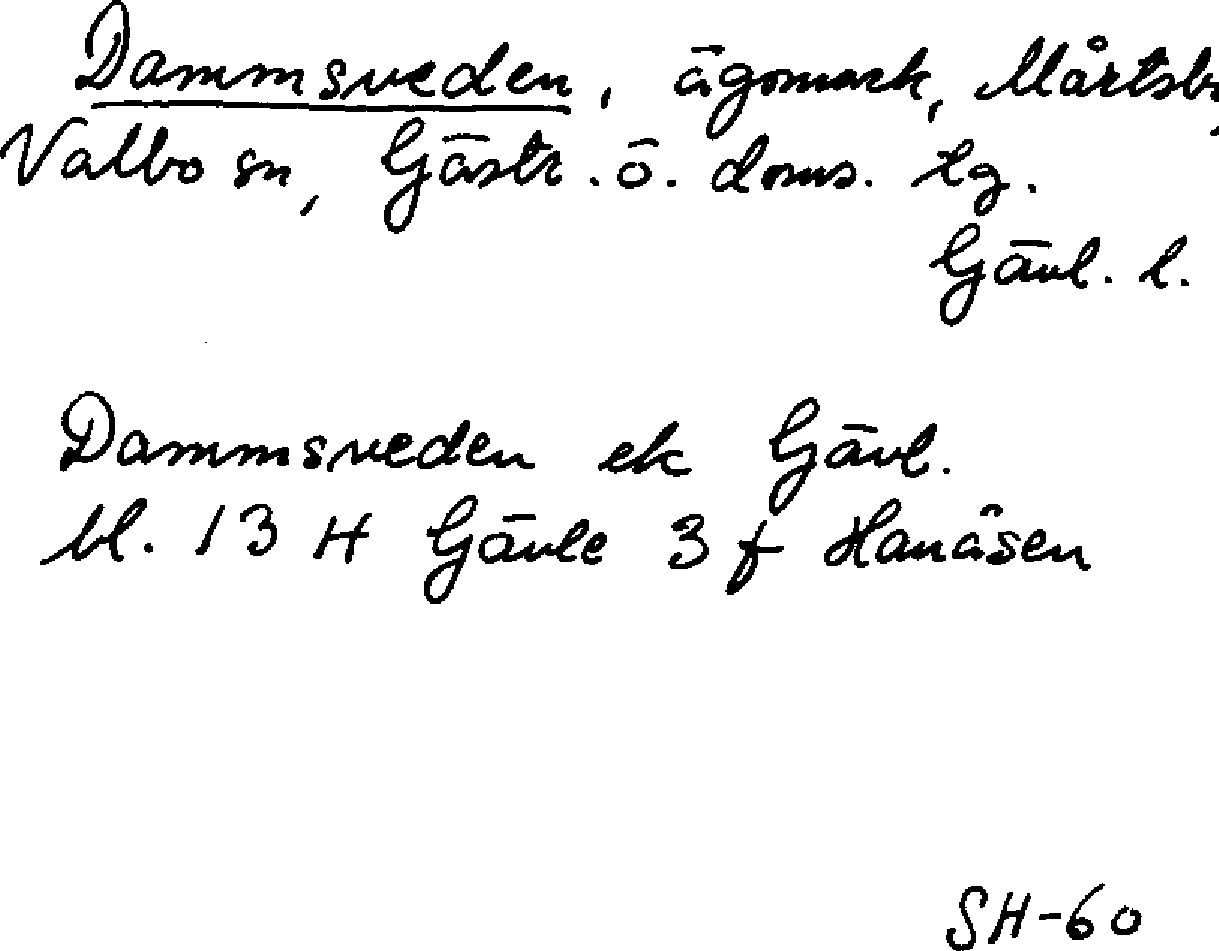 Dammsveden, ägomark, Mårtsb
Valbo sn, Gästr. ö. doms. tg.
Gävl. l.
Dammsveden ek Gävl.
bl. 13 H Gävle 3 f Hanåsen
SH-60